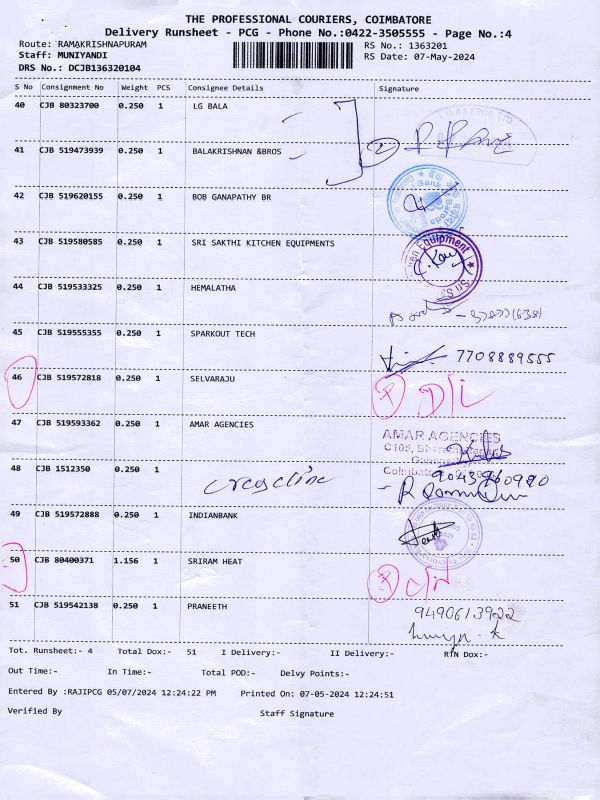 THE PROFESSIONAL COURIERS, COIMBATORE
Delivery Runsheet - PCG - Phone No.:0422-3505555 - Page No.:4
Route: RAMAKRISHNAPURAM RS No.: 1363201
Staff: MUNIYANDI RS Date: 07-May-2024
DRS No.: DCJB136320104
S No Consignment No Weight PCS Consignee Details Signature
40 CJB 80323700 0.250 1 LG BALA
41 CJB 519473939 0.250 1 BALAKRISHNAN &BROS 2
42 CJB 519620155 0.250 1 BOB GANAPATHY BR
Bank of Baroda
43 CJB 519580585 0.250 1 SRI SAKTHI KITCHEN EQUIPMENTS
Equipment
44 CJB 519533325 0.250 1 HEMALATHA
45 CJB 519555355 0.250 1 SPARKOUT TECH
7708889555
46 CJB 519572818 0.250 1 SELVARAJU
D/L
47 CJB 519593362 0.250 1 AMAR AGENCIES
AMAR AGENCIES
48 CJB 1512350 0.250 1
49 CJB 519572888 0.250 1 INDIANBANK
50 CJB 80400371 1.156 1 SRIRAM HEAT
51 CJB 519542138 0.250 1 PRANEETH
9490613922
Tot. Runsheet:- 4 Total Dox:- 51 I Delivery:- II Delivery:- RTN Dox:-
Out Time:- In Time:- Total POD:- Delvy Points:-
Entered By :RAJIPCG 05/07/2024 12:24:22 PM Printed On: 07-05-2024 12:24:51
Verified By Staff Signature